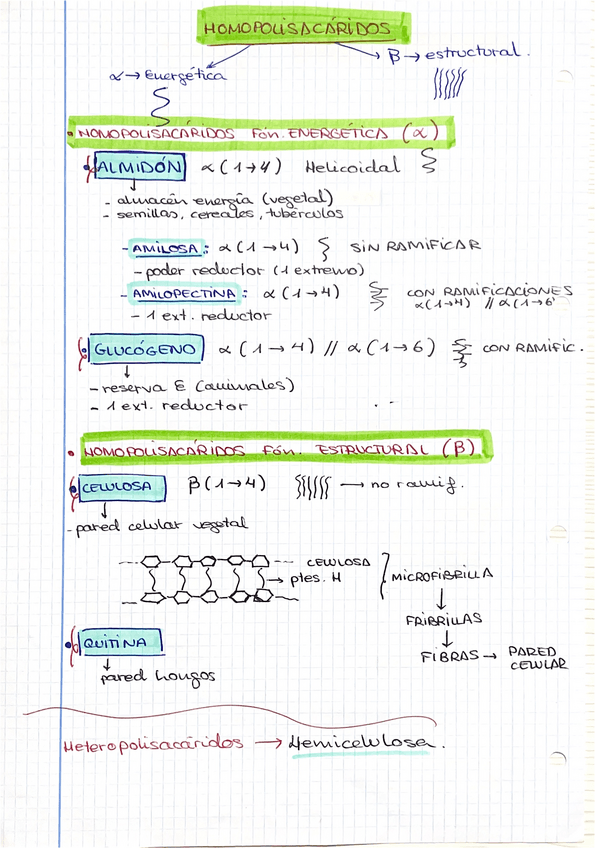 HOMOPOLISACÁRIDOS
α → Energética
β → estructural.
• HOMOPOLISACÁRIDOS Fón. ENERGÉTICA (α)
• ALMIDÓN α (1→4) Helicoidal
- almacén energía (vegetal)
- semillas, cereales, tubérculos
- AMILOSA: α (1→4) SIN RAMIFICAR
- poder reductor (1 extremo)
- AMILOPECTINA: α (1→4) CON RAMIFICACIONES
α(1→4) // α(1→6)
- 1 ext. reductor
• GLUCÓGENO α (1→4) // α (1→6) CON RAMIFIC.
- reserva E (animales)
- 1 ext. reductor
• HOMOPOLISACÁRIDOS Fón. ESTRUCTURAL (β)
• CELULOSA β (1→4) → no ramif.
- pared celular vegetal
CELULOSA
→ ptes. H
MICROFIBRILLA
↓
FRIBRILLAS
↓
FIBRAS → PARED CELULAR
• QUITINA
pared hongos
Heteropolisacáridos → Hemicelulosa.